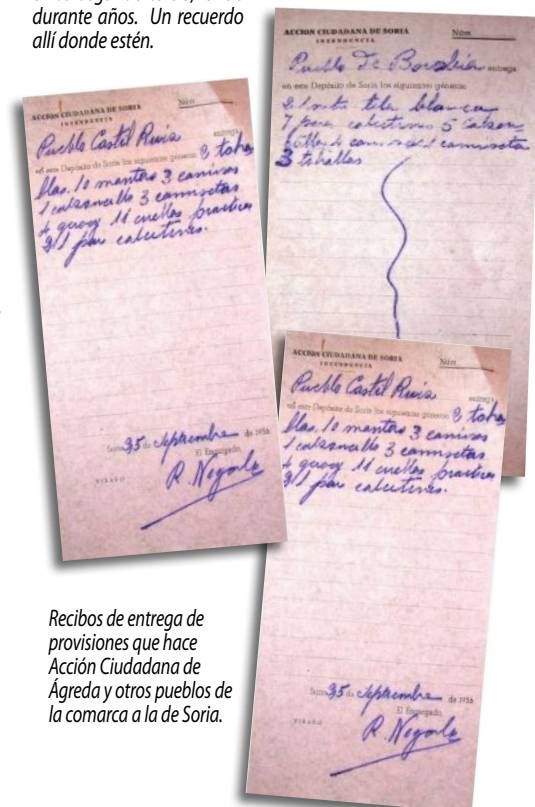 durante años. Un recuerdo
allí donde estén.
ACCION CIUDADANA DE SORIA
INTENDENCIA
Núm.
Pueblo Castil Ruiz entrega
en este Depósito de Soria los siguientes géneros: 3 toha
llas. 10 mantas 3 camisas
1 calzoncillo 3 camisetas
4 11 cuellos practicos
31 pares calcetines.
Soria 25 de septiembre de 1936
El Encargado,
VISADO
ACCION CIUDADANA DE SORIA
INTENDENCIA
Núm.
Pueblo De entrega
en este Depósito de Soria los siguientes géneros:
2 tela blanca
7 pares calcetines 5 calzon
cillos 4 camisas 1 camiseta
3 tohallas
ACCION CIUDADANA DE SORIA
INTENDENCIA
Núm.
Pueblo Castil Ruiz entrega
en este Depósito de Soria los siguientes géneros: 3 toha
llas. 10 mantas 3 camisas
1 calzoncillo 3 camisetas
4 11 cuellos practicos
31 pares calcetines.
Soria 25 de septiembre de 1936
El Encargado,
VISADO
Recibos de entrega de
provisiones que hace
Acción Ciudadana de
Ágreda y otros pueblos de
la comarca a la de Soria.